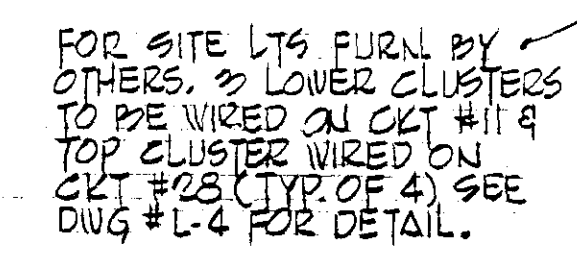 FOR SITE LTS FURN. BY
OTHERS. 3 LOWER CLUSTERS
TO BE WIRED ON CKT #11 &
TOP CLUSTER WIRED ON
CKT #28 (TYP. OF 4) SEE
DWG #L-4 FOR DETAIL.